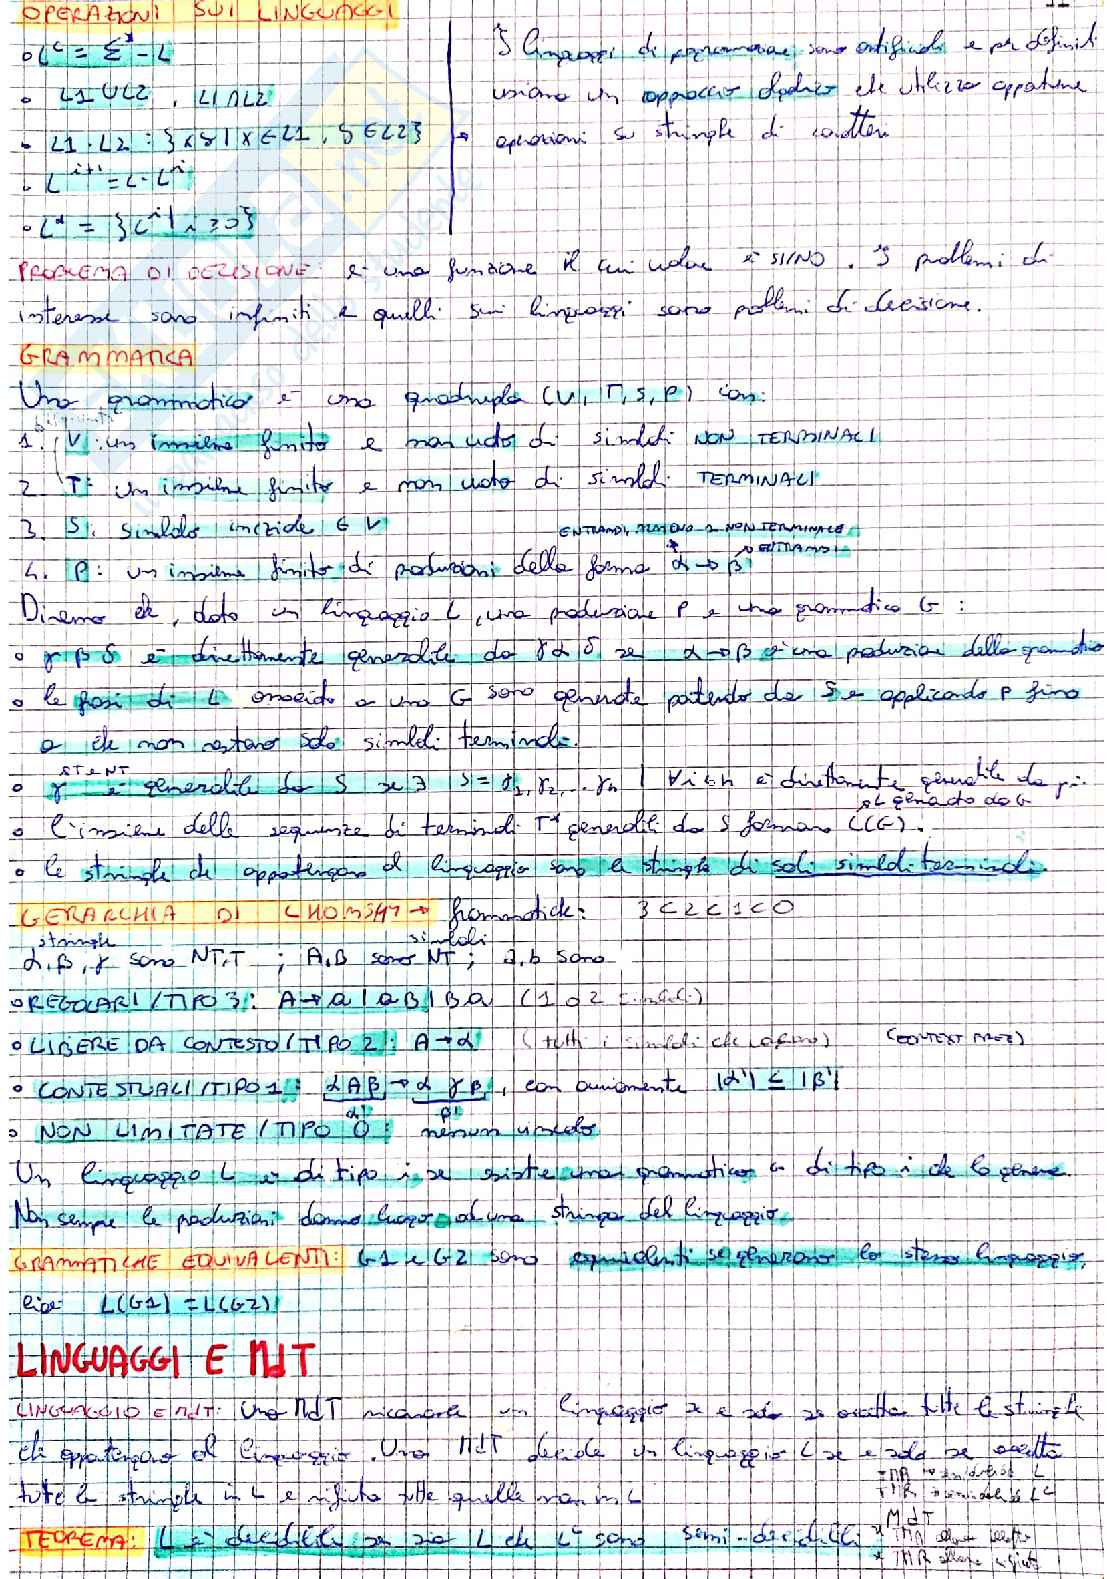 OPERAZIONI SUI LINGUAGGI
• L^c = Σ* - L
• L1 ∪ L2 , L1 ∩ L2
• L1 · L2 : {xy | x ∈ L1, y ∈ L2}
• L^i+1 = L · L^i
• L* = {L^i | i ≥ 0}
I linguaggi di programmazione sono artificiali e per definirli
usiamo un approccio algebrico che utilizza opportune
operazioni su stringhe di caratteri
PROBLEMA DI DECISIONE: è una funzione il cui valore è SI/NO. I problemi di
interesse sono infiniti e quelli sui linguaggi sono problemi di decisione.
GRAMMATICA
Una grammatica è una quadrupla (V, T, S, P) con:
1. V: un insieme finito e non vuoto di simboli NON TERMINALI
2. T: un insieme finito e non vuoto di simboli TERMINALI
3. S: simbolo iniziale ∈ V
ENTRAMBI, ALMENO 1 NON TERMINALE
ENTRAMBI
4. P: un insieme finito di produzioni della forma α → β
Diremo che, dato un linguaggio L, una produzione P e una grammatica G:
• γ β δ è direttamente generabile da γ α δ se α → β è una produzione della grammatica
• le frasi di L associato a una G sono generate partendo da S e applicando P fino
a che non restano solo simboli terminali.
ST e NT
• γ è generabile da S se ∃ S = γ1, γ2, .. γn | ∀ i è direttamente generabile da
• L'insieme delle sequenze di terminali T* generabili da S formano L(G).
L generato da G
• le stringhe che appartengono al linguaggio sono le stringhe di soli simboli terminali.
GERARCHIA DI CHOMSKY → grammatiche: 3 < 2 < 1 < 0
stringhe simboli
α, β, γ sono NT, T ; A, B sono NT ; a, b sono
• REGOLARI / TIPO 3: A → a | aB | Ba (1 o 2 simboli)
• LIBERE DA CONTESTO / TIPO 2: A → α (tutti i simboli che vogliamo) (CONTEXT FREE)
• CONTESTUALI / TIPO 1: αAβ → αγβ, con ovviamente |α'| ≤ |β'|
α' β'
• NON LIMITATE / TIPO 0: nessun vincolo
Un linguaggio L è di tipo i se esiste una grammatica G di tipo i che lo genera.
Non sempre le produzioni danno luogo ad una stringa del linguaggio.
GRAMMATICHE EQUIVALENTI: G1 e G2 sono equivalenti se generano lo stesso linguaggio,
cioè L(G1) = L(G2)
LINGUAGGI E MdT
LINGUAGGIO E MdT: Una MdT riconosce un linguaggio se e solo se accetta tutte le stringhe
che appartengono al linguaggio. Una MdT decide un linguaggio L se e solo se accetta
tutte le stringhe in L e rifiuta tutte quelle non in L
TEOREMA: L è decidibile se sia L che L^c sono semi-decidibili
MdT